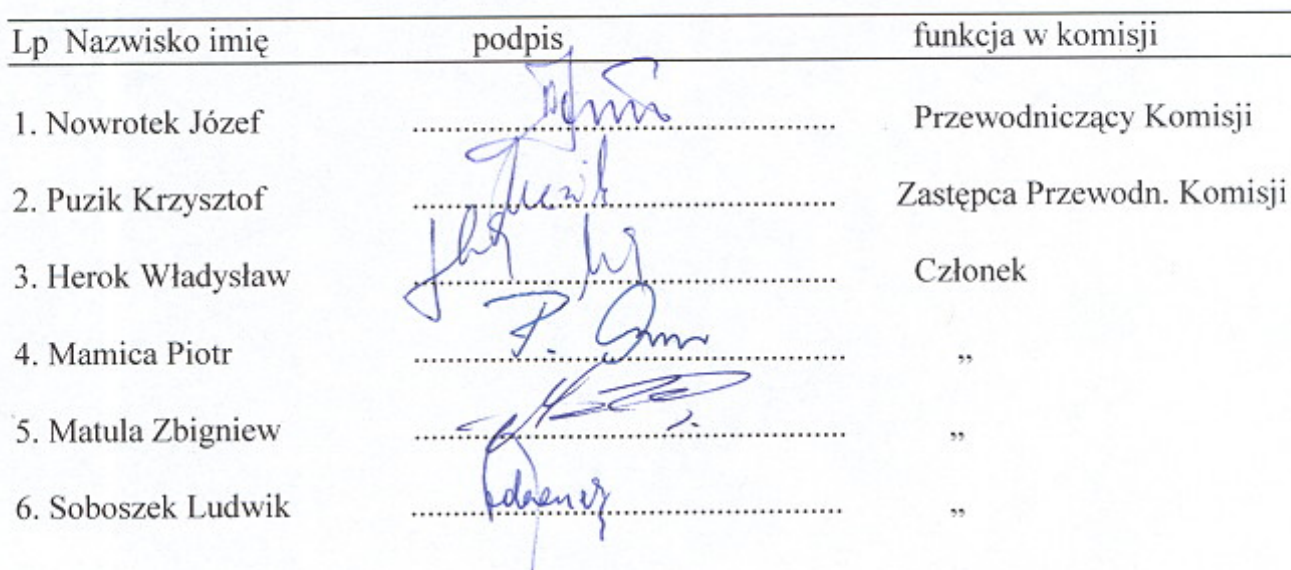 Lp Nazwisko imię podpis funkcja w komisji
1. Nowrotek Józef ........................................ Przewodniczący Komisji
2. Puzik Krzysztof ........................................ Zastępca Przewodn. Komisji
3. Herok Władysław ........................................ Członek
4. Mamica Piotr ........................................ „
5. Matula Zbigniew ........................................ „
6. Soboszek Ludwik ........................................ „